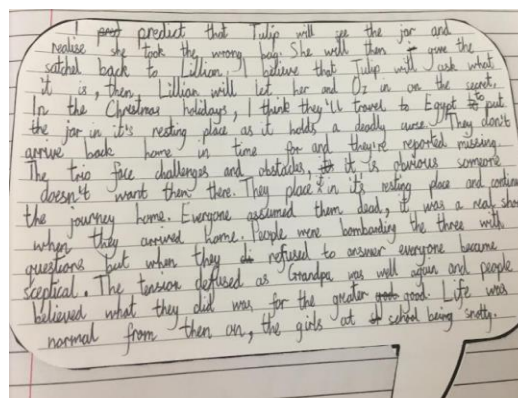 I predict that Tulip will see the jar and
realise she took the wrong bag. She will then give the
satchel back to Lillian. I believe that Tulip will ask what
it is, then, Lillian will let her and Oz in on the secret.
In the Christmas holidays, I think they'll travel to Egypt to put
the jar in it's resting place as it holds a deadly curse. They don't
arrive back home in time for and they're reported missing.
The trio face challenges and obstacles, it is obvious someone
doesn't want them there. They place it in it's resting place and continue
the journey home. Everyone assumed them dead, it was a real shock
when they arrived home. People were bombarding the three with
questions but when they refused to answer everyone became
sceptical. The tension defused as Grandpa was well again and people
believed what they did was for the greater good. Life was
normal from then on, the girls at school being snotty.